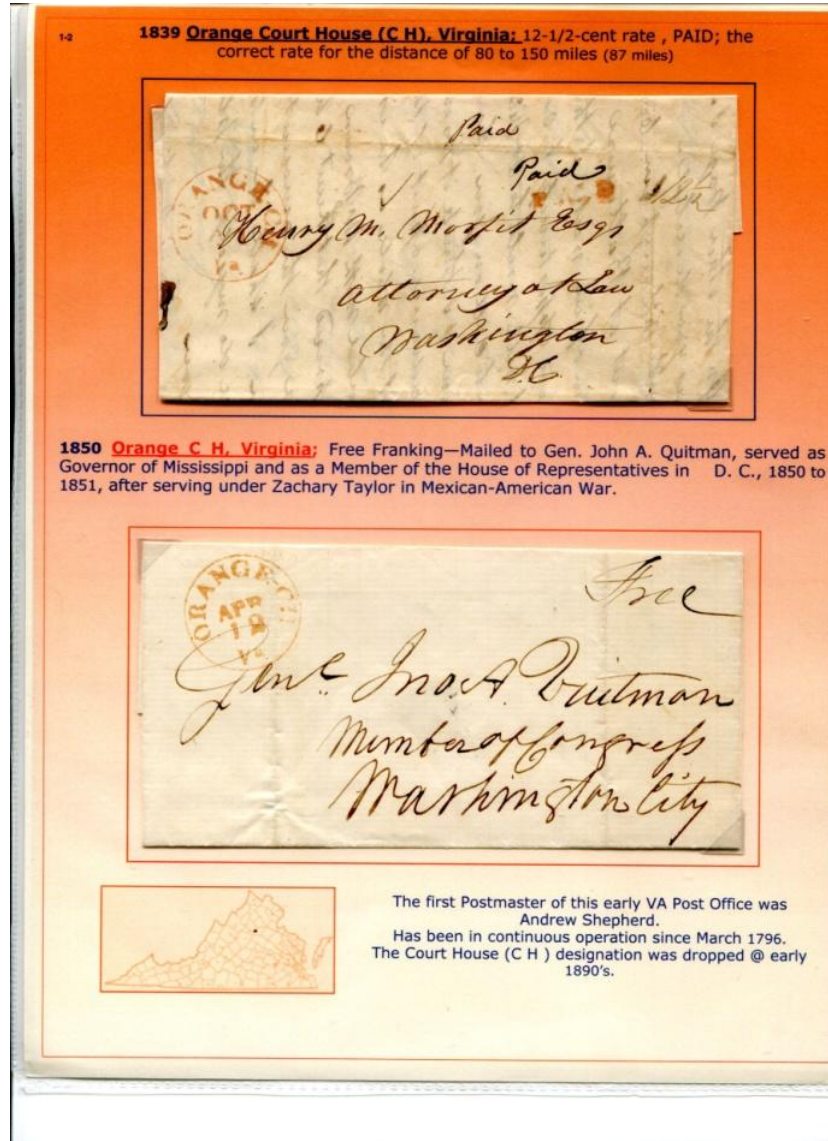 1-2
1839 Orange Court House (C H), Virginia; 12-1/2-cent rate , PAID; the
correct rate for the distance of 80 to 150 miles (87 miles)
Paid
Paid
PAID 12½
ORANGE C.H.
OCT
Va.
Henry M. Morfit Esqr
Attorney at Law
Washington
DC
1850 Orange C H, Virginia; Free Franking—Mailed to Gen. John A. Quitman, served as
Governor of Mississippi and as a Member of the House of Representatives in D. C., 1850 to
1851, after serving under Zachary Taylor in Mexican-American War.
ORANGE C.H.
APR
Va.
Free
Genl. Jno. A. Quitman
Member of Congress
Washington City
The first Postmaster of this early VA Post Office was
Andrew Shepherd.
Has been in continuous operation since March 1796.
The Court House (C H ) designation was dropped @ early
1890's.